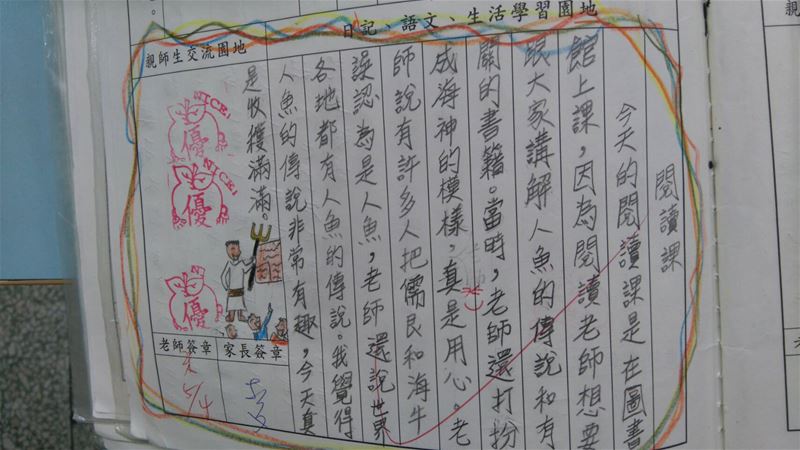 日記、語文、生活學習園地
閱讀課
今天的閱讀課是在圖書
館上課，因為閱讀老師想要
跟大家講解人魚的傳說和有
關的書籍。當時，老師還打扮
成海神的模樣，真是用心。老
師說有許多人把儒艮和海牛
誤認為是人魚，老師還說世界
各地都有人魚的傳說。我覺得
人魚的傳說非常有趣，今天真
是收獲滿滿。
親師生交流園地
NICE!
優
NICE!
優
優
家長簽章
老師簽章
5/4